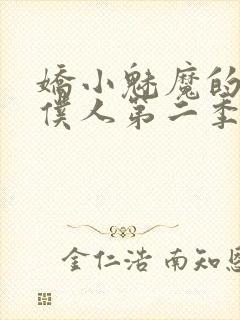 嬌小魅魔的
僕人第二季
金仁浩 南知恩